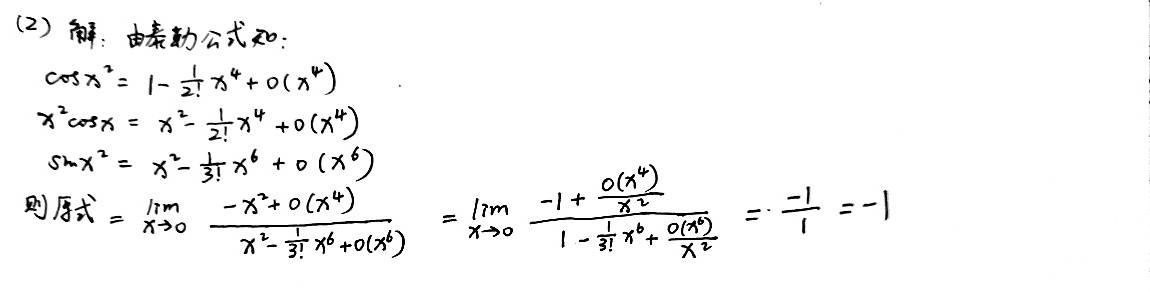 (2) 解: 由泰勒公式知:
cosx² = 1 - \frac{1}{2!}x⁴ + o(x⁴)
x²cosx = x² - \frac{1}{2!}x⁴ + o(x⁴)
sinx² = x² - \frac{1}{3!}x⁶ + o(x⁶)
则原式 = \lim_{x→0} \frac{-x² + o(x⁴)}{x² - \frac{1}{3!}x⁶ + o(x⁶)} = \lim_{x→0} \frac{-1 + \frac{o(x⁴)}{x²}}{1 - \frac{1}{3!}x⁶ + \frac{o(x⁶)}{x²}} = \frac{-1}{1} = -1